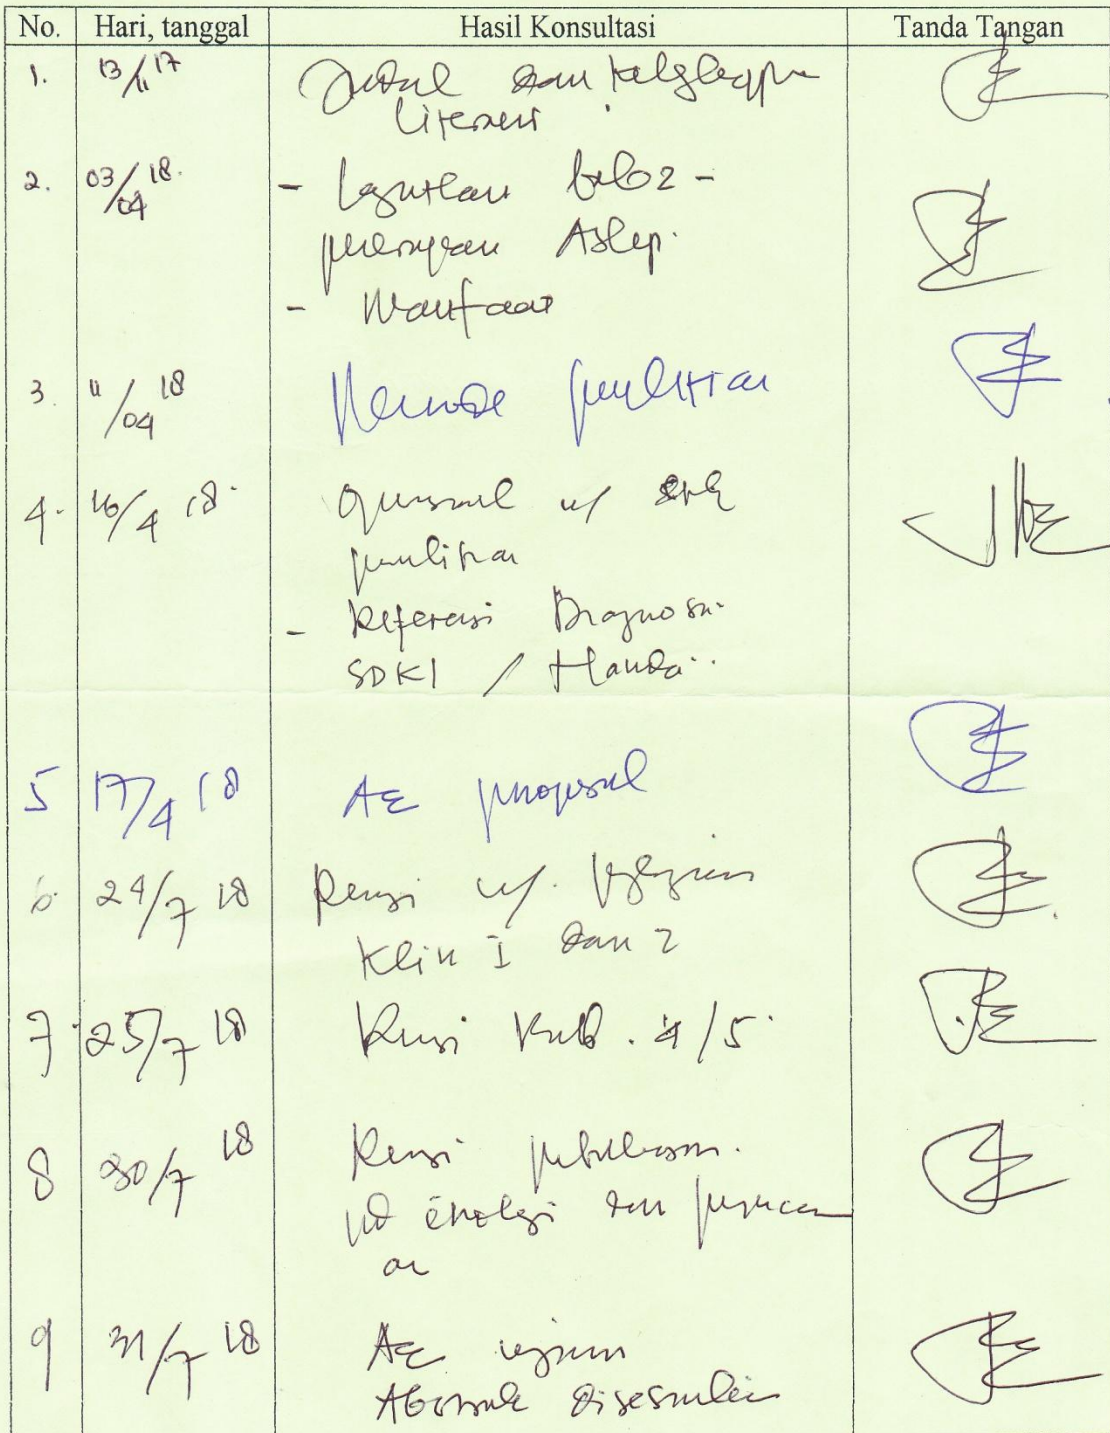 No. Hari, tanggal Hasil Konsultasi Tanda Tangan
1. 13/11 17 Judul dan kelengkapan
literatur
2. 03/04 18. - Lanjutkan bab 2 -
penerapan Askep.
- Manfaat
3. 11/04 18 Metode penelitian
4. 16/4 18. u/ etik
penelitian
- Referensi Diagnosa
SDKI / Nanda..
5 17/4 18 Acc proposal
6. 24/7 18 Revisi u/.
Klien I dan 2
7. 25/7 18 Revisi Bab. 4/5.
8 30/7 18 Revisi pembahasan.
pd etiologi dan
an
9 31/7 18 Acc ujian
Abstrak disesuaikan